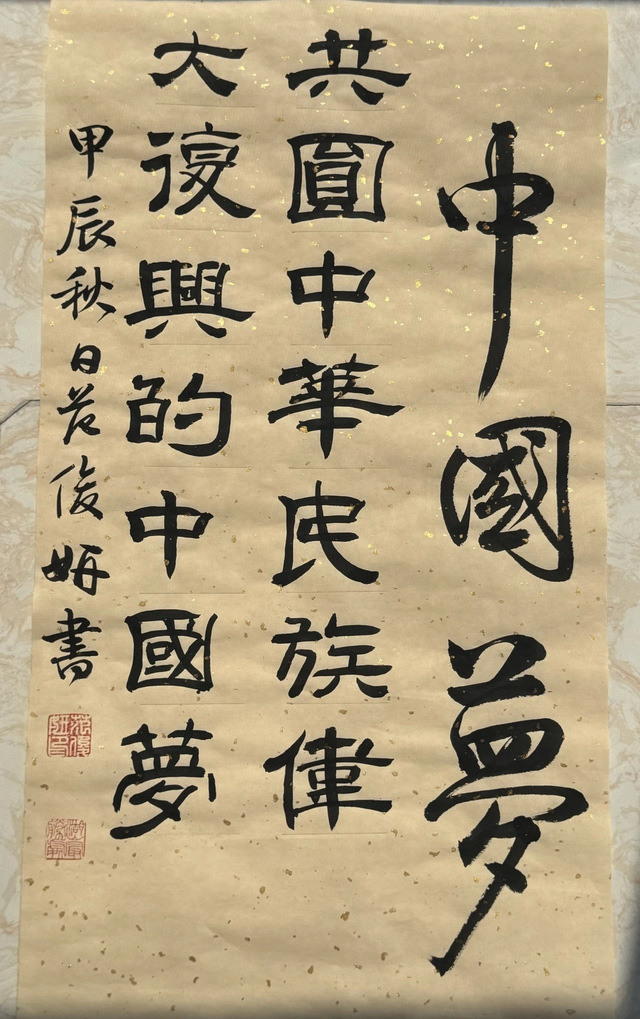 中國夢
共圓中華民族偉
大復興的中國夢
甲辰秋日范俊妍書